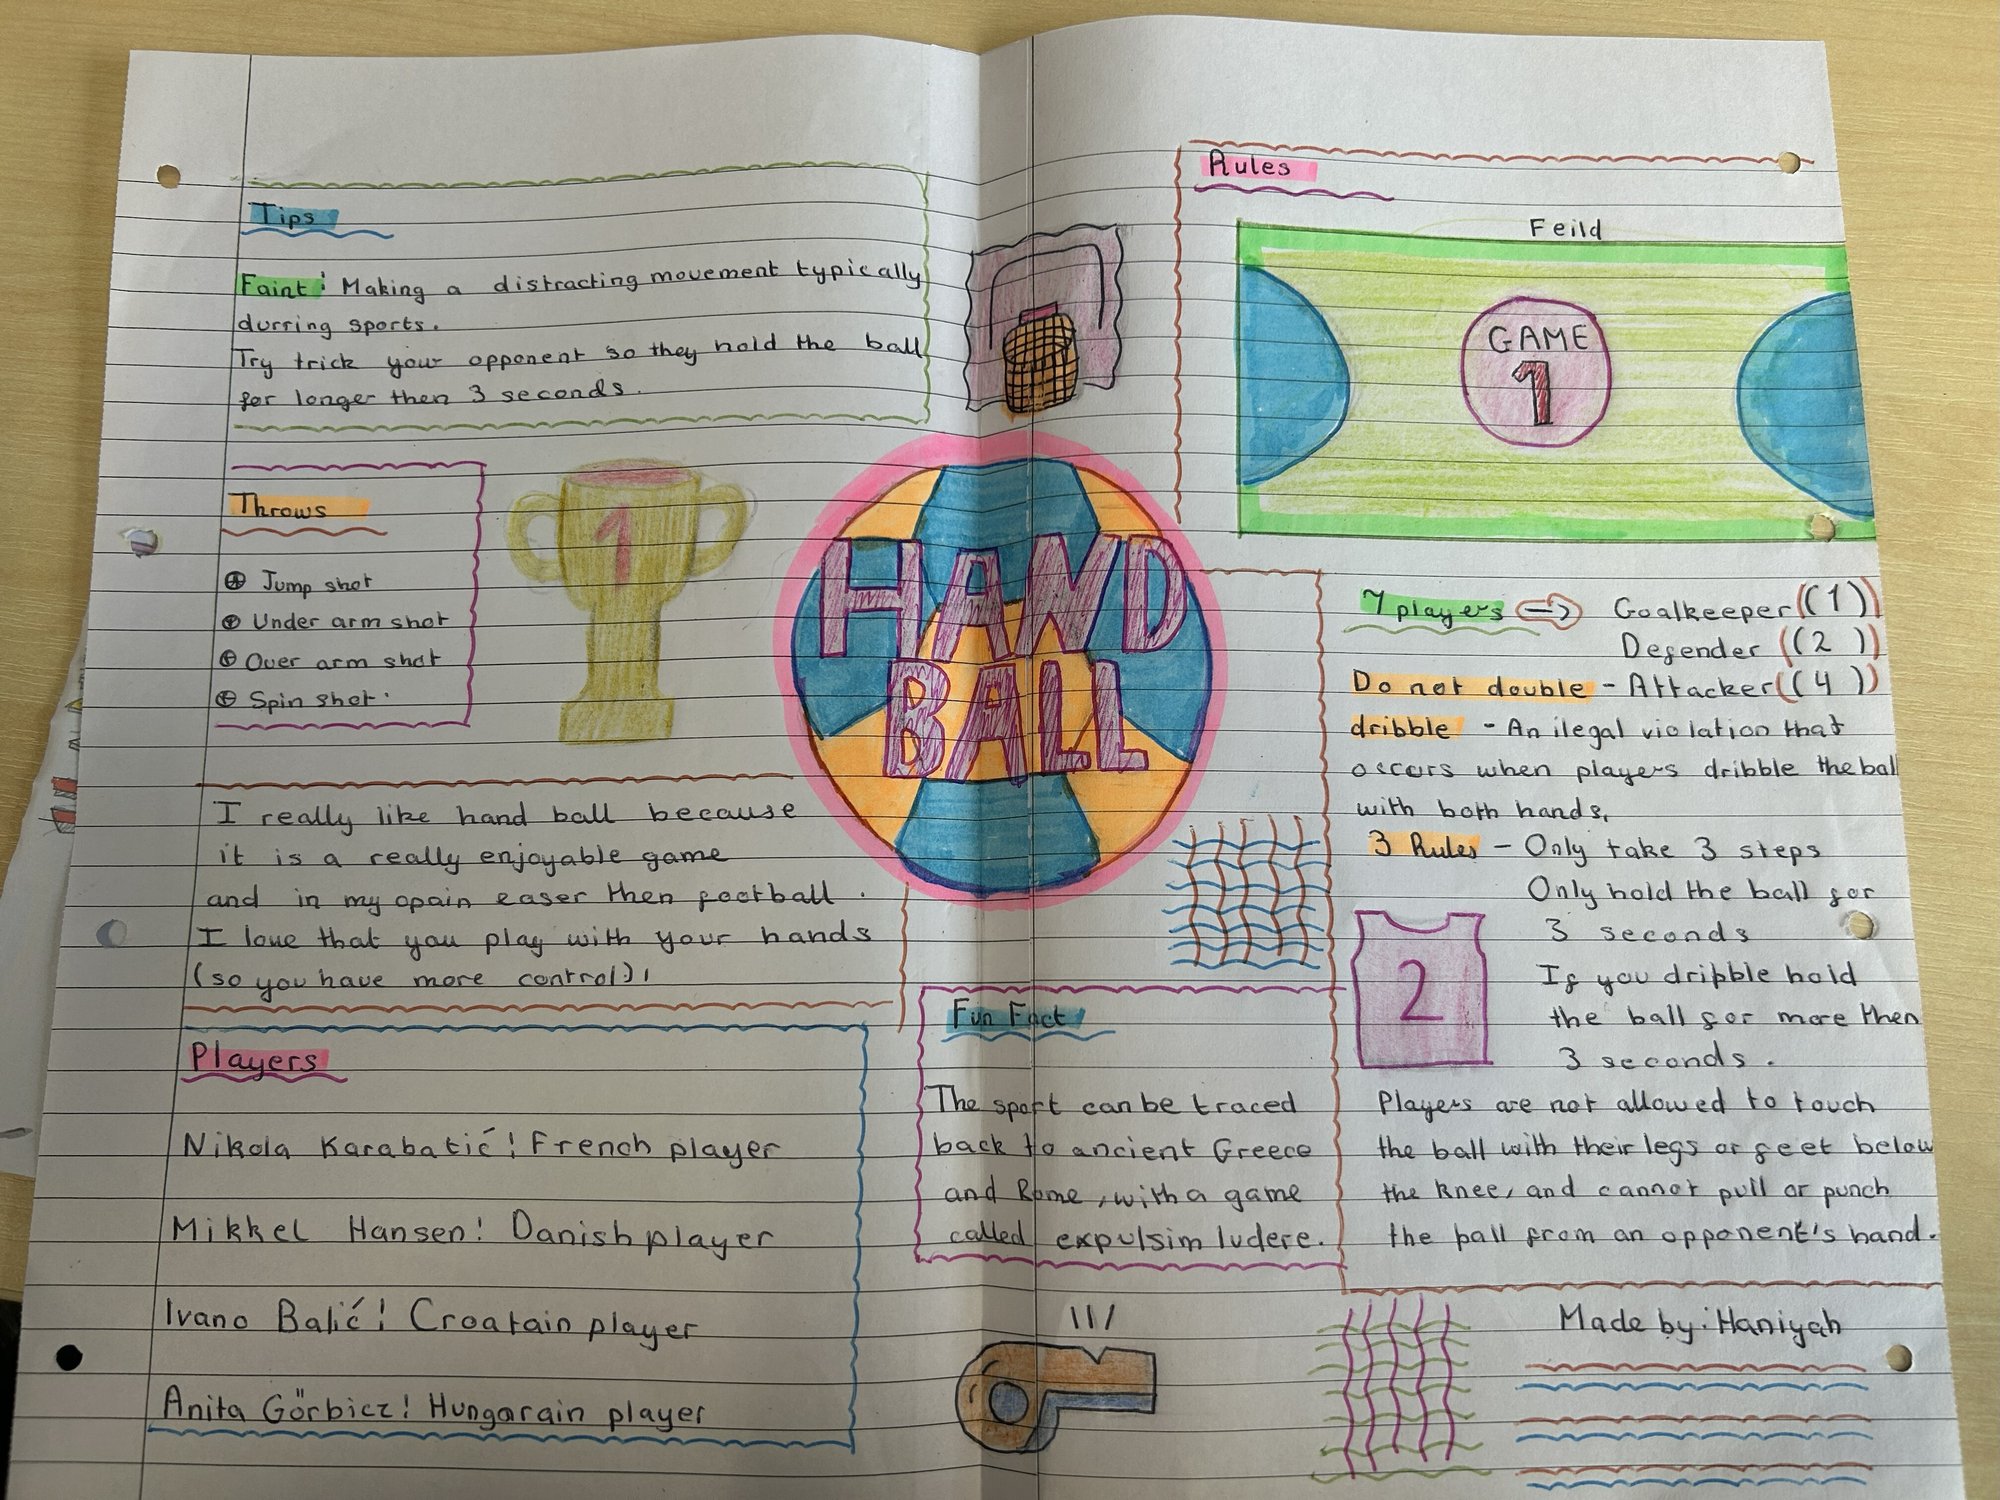 Tips
Faint: Making a distracting movement typically
durring sports.
Try trick your opponent so they hold the ball
for longer then 3 seconds.
Throws
Jump shot
Under arm shot
Over arm shot
Spin shot.
1
HAND
BALL
I really like hand ball because
it is a really enjoyable game
and in my opain easer then football.
I love that you play with your hands
(so you have more control)!
Players
Nikola Karabatić: French player
Mikkel Hansen: Danish player
Ivano Balić: Croatain player
Anita Görbicz: Hungarain player
Fun Fact
The sport can be traced
back to ancient Greece
and Rome, with a game
called expulsim ludere.
Rules
Feild
GAME
1
7 players → Goalkeeper (1)
Defender (2)
Do not double - Attacker (4)
dribble - An ilegal violation that
occurs when players dribble the ball
with both hands.
3 Rules - Only take 3 steps
Only hold the ball for
3 seconds
If you dribble hold
the ball for more then
3 seconds.
2
Players are not allowed to touch
the ball with their legs or feet below
the knee, and cannot pull or punch
the ball from an opponent's hand.
Made by: Haniyah